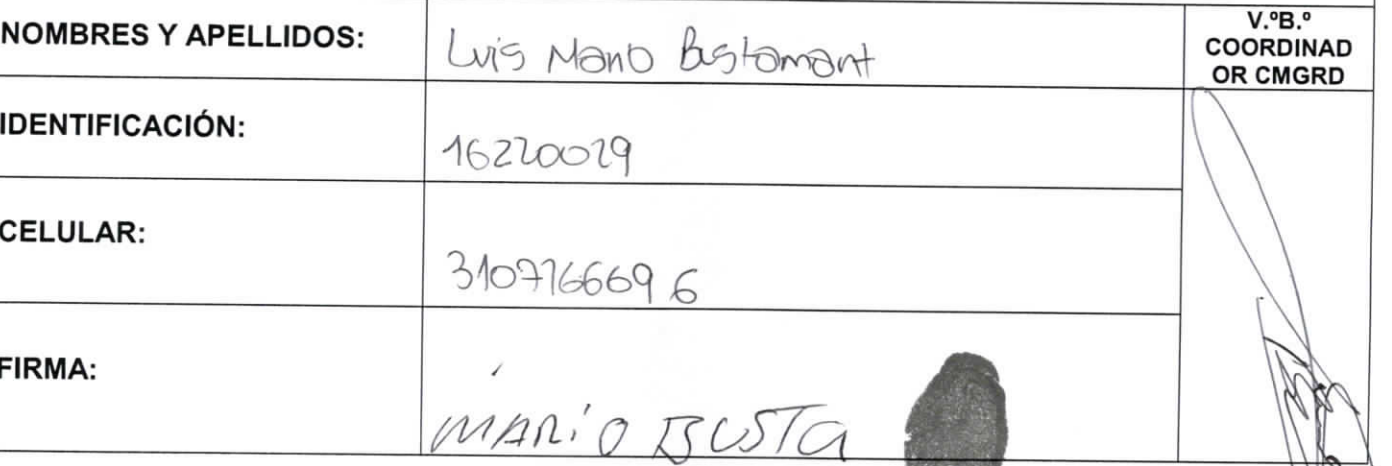 NOMBRES Y APELLIDOS: Luis Mario Bustamant
V.ºB.º
COORDINAD
OR CMGRD
IDENTIFICACIÓN: 16220029
CELULAR: 3107766696
FIRMA: MARiO BUSTa